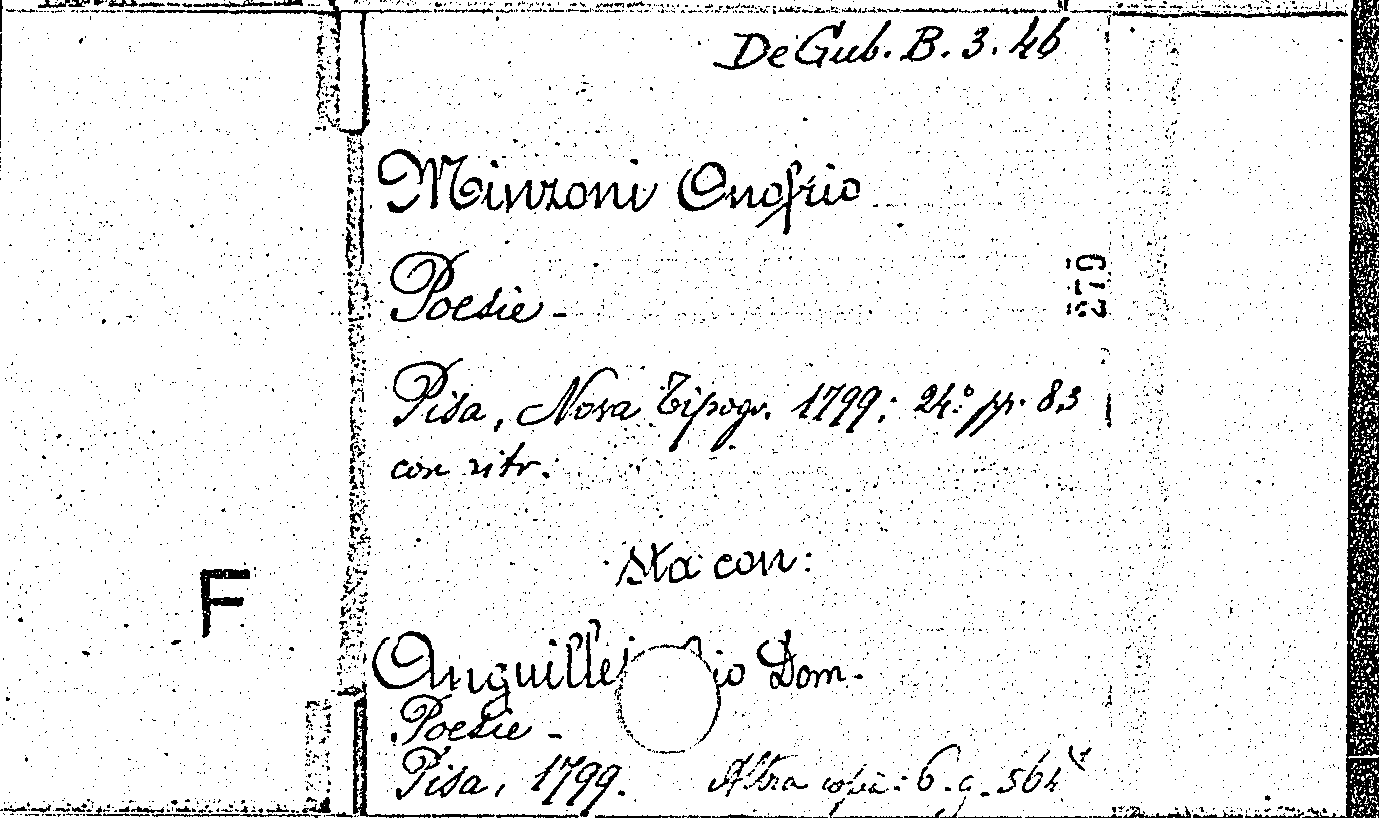 De Gub. B. 3. 46
Minzoni Onofrio
Poesie -
279
Pisa, Nova Tipogr. 1799; 24° pp. 83
con ritr.
sta con:
F
Anguille io Dom.
Poesie -
Pisa, 1799. Altra copia: 6. g. 564